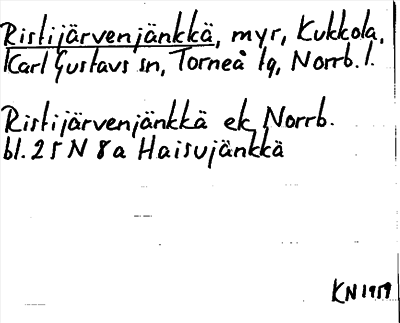 Ristijärvenjänkkä, myr, Kukkola,
Karl Gustavs sn, Torneå tg, Norrb. l.
Ristijärvenjänkkä ek, Norrb.
bl. 25 N 8 a Haisujänkkä
KN 1959